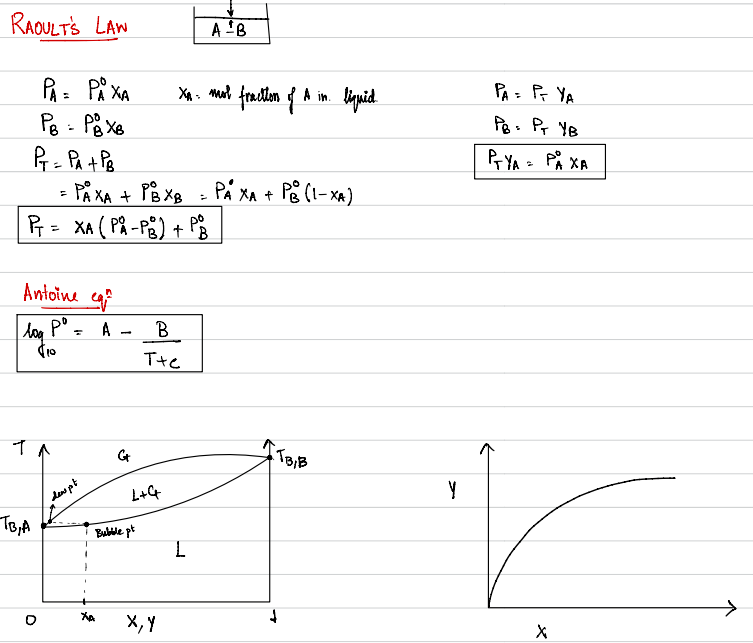 RAOULT'S LAW
A - B
P_A = P_A⁰ x_A    x_A = mol fraction of A in liquid
P_B = P_B⁰ x_B
P_T = P_A + P_B
= P_A⁰ x_A + P_B⁰ x_B = P_A⁰ x_A + P_B⁰ (1-x_A)
P_T = x_A (P_A⁰ - P_B⁰) + P_B⁰
P_A = P_T y_A
P_B = P_T y_B
P_T y_A = P_A⁰ x_A
Antoine eqⁿ
log₁₀ P⁰ = A - B/(T+C)
T
G
T_B,B
dew pt
L+G
T_B,A
Bubble pt
L
0
x_A
X, Y
1
Y
X